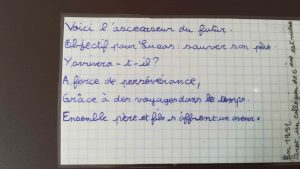 Voici l'ascenseur du futur.
Objectif pour Lucas : sauver son père.
Y arrivera-t-il ?
A force de persévérance,
Grâce à des voyages dans le temps.
Ensemble père et fils s'offriront un avenir.
En 1991,